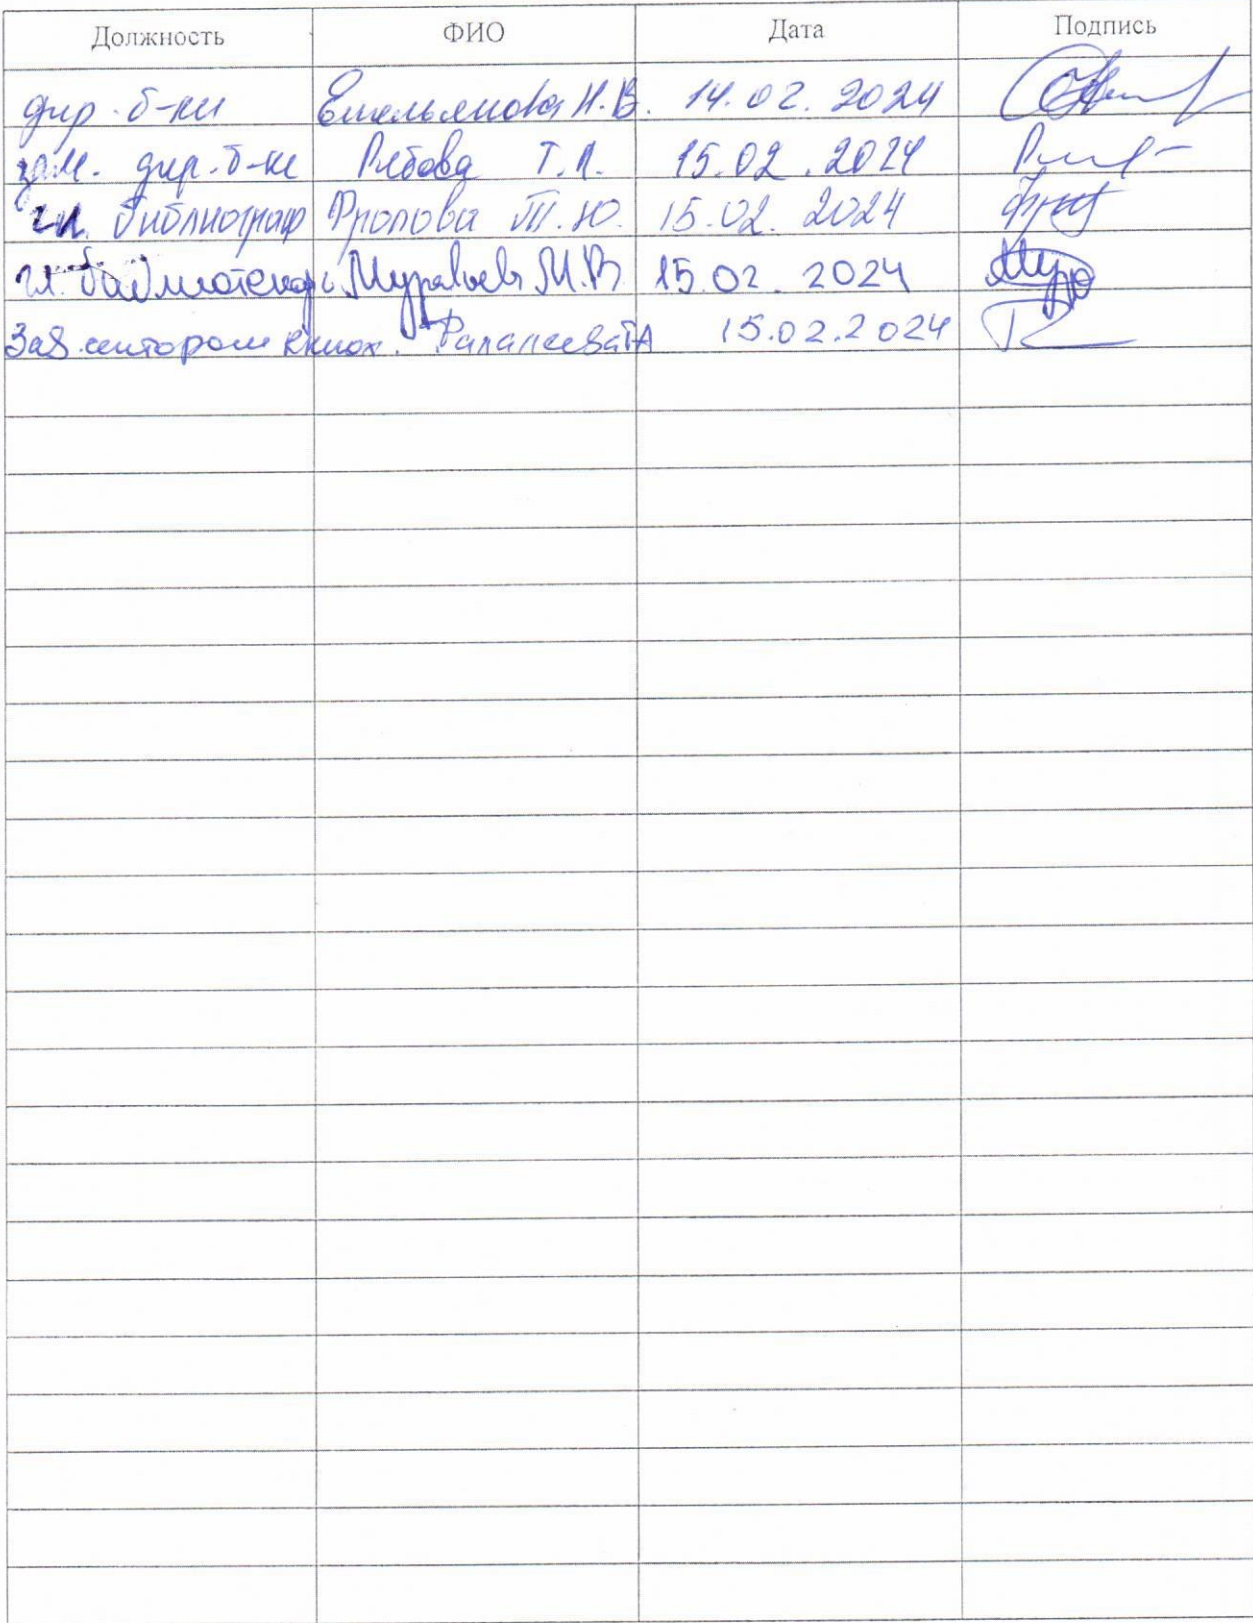 Должность ФИО Дата Подпись
дир. б-ки Емельянова Н.В. 14.02.2024
зам. дир. б-ки Рябова Т.Л. 15.02.2024
гл. библиограф Фролова Т.Ю. 15.02.2024
гл. библиотекарь Муравьева М.В 15.02.2024
Зав. сектором книгох. 15.02.2024